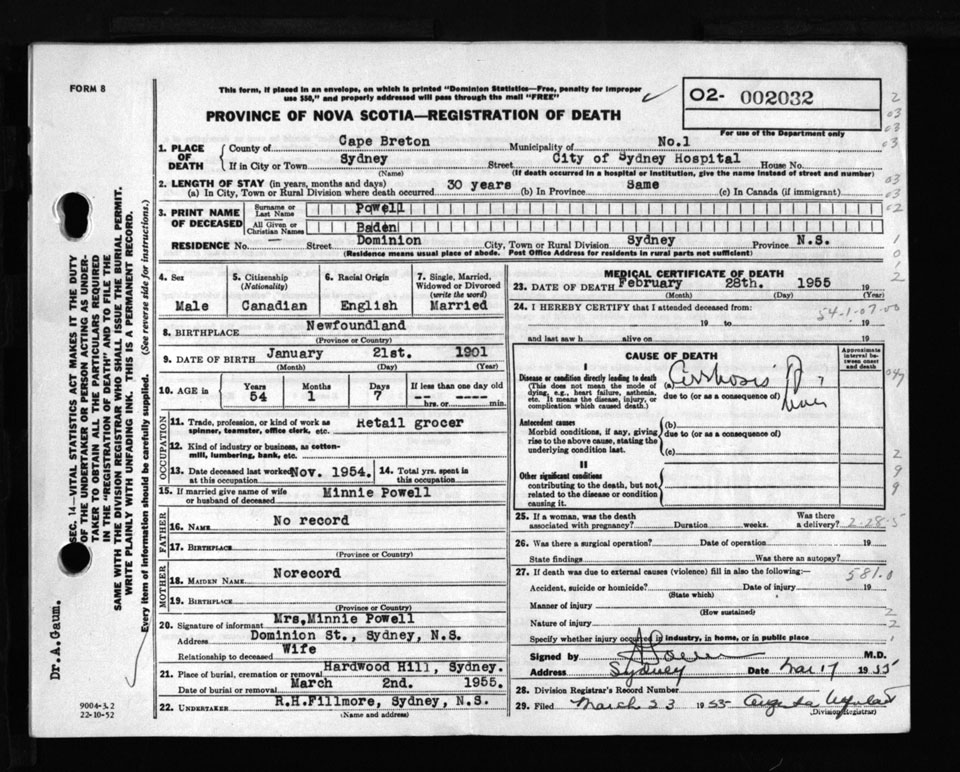 FORM 8
This form, if placed in an envelope, on which is printed "Dominion Statistics—Free, penalty for improper
use $50," and properly addressed will pass through the mail "FREE"
02- 002032
For use of the Department only
PROVINCE OF NOVA SCOTIA—REGISTRATION OF DEATH
1. PLACE OF DEATH
County of Cape Breton Municipality of No.1
If in City or Town Sydney Street City of Sydney Hospital House No.
(Name) (If death occurred in a hospital or institution, give the name instead of street and number)
2. LENGTH OF STAY (in years, months and days)
(a) In City, Town or Rural Division where death occurred 30 years (b) In Province Same (c) In Canada (if immigrant)
3. PRINT NAME OF DECEASED
Surname or Last Name Powell
All Given or Christian Names Baden
RESIDENCE No. — Street Dominion City, Town or Rural Division Sydney Province N.S.
(Residence means usual place of abode. Post Office Address for residents in rural parts not sufficient)
4. Sex Male
5. Citizenship (Nationality) Canadian
6. Racial Origin English
7. Single, Married, Widowed or Divorced (write the word) Married
8. BIRTHPLACE Newfoundland
(Province or Country)
9. DATE OF BIRTH January 21st. 1901
(Month) (Day) (Year)
10. AGE in Years 54 Months 1 Days 7 If less than one day old -- hrs. or ---- min.
OCCUPATION
11. Trade, profession, or kind of work as spinner, teamster, office clerk, etc. Retail grocer
12. Kind of industry or business, as cotton-mill, lumbering, bank, etc.
13. Date deceased last worked at this occupation Nov. 1954.
14. Total yrs. spent in this occupation
15. If married give name of wife or husband of deceased Minnie Powell
FATHER
16. NAME No record
17. BIRTHPLACE
(Province or Country)
MOTHER
18. MAIDEN NAME Norecord
19. BIRTHPLACE
(Province or Country)
20. Signature of informant Mrs,Minnie Powell
Address Dominion St., Sydney, N.S.
Relationship to deceased Wife
21. Place of burial, cremation or removal Hardwood Hill, Sydney.
Date of burial or removal March 2nd. 1955.
22. UNDERTAKER R.H.Fillmore, Sydney, N.S.
(Name and address)
MEDICAL CERTIFICATE OF DEATH
23. DATE OF DEATH February 28th. 1955 19
(Month) (Day) (Year)
24. I HEREBY CERTIFY that I attended deceased from:
54-1-07-00
19 to 19
and last saw h alive on 19
CAUSE OF DEATH
Approximate interval between onset and death
I
Disease or condition directly leading to death (a) Cirrhosis
(This does not mean the mode of dying, e.g., heart failure, asthenia, etc. It means the disease, injury, or complication which caused death.)
due to (or as a consequence of) Liver
?
Antecedent causes
Morbid conditions, if any, giving rise to the above cause, stating the underlying condition last.
(b)
due to (or as a consequence of)
(c)
II
Other significant conditions
contributing to the death, but not related to the disease or condition causing it.
25. If a woman, was the death associated with pregnancy? Duration weeks. Was there a delivery?
26. Was there a surgical operation? Date of operation 19
State findings Was there an autopsy?
27. If death was due to external causes (violence) fill in also the following:—
581.0
Accident, suicide or homicide? Date of injury 19
(State which)
Manner of injury
(How sustained)
Nature of injury
Specify whether injury occurred in industry, in home, or in public place
Signed by M.D.
Address Sydney Date Mar 17 1955
28. Division Registrar's Record Number
29. Filed March 23 1955
(Division Registrar)
SEC. 14—VITAL STATISTICS ACT MAKES IT THE DUTY
OF THE UNDERTAKER OR PERSON ACTING AS UNDER-
TAKER TO OBTAIN ALL THE PARTICULARS REQUIRED
IN THE "REGISTRATION OF DEATH" AND TO FILE THE
SAME WITH THE DIVISION REGISTRAR WHO SHALL ISSUE THE BURIAL PERMIT.
WRITE PLAINLY WITH UNFADING INK. THIS IS A PERMANENT RECORD.
Every item of information should be carefully supplied. (See reverse side for instructions.)
Dr.A.Gaum.
9004-3.2
22-10-52